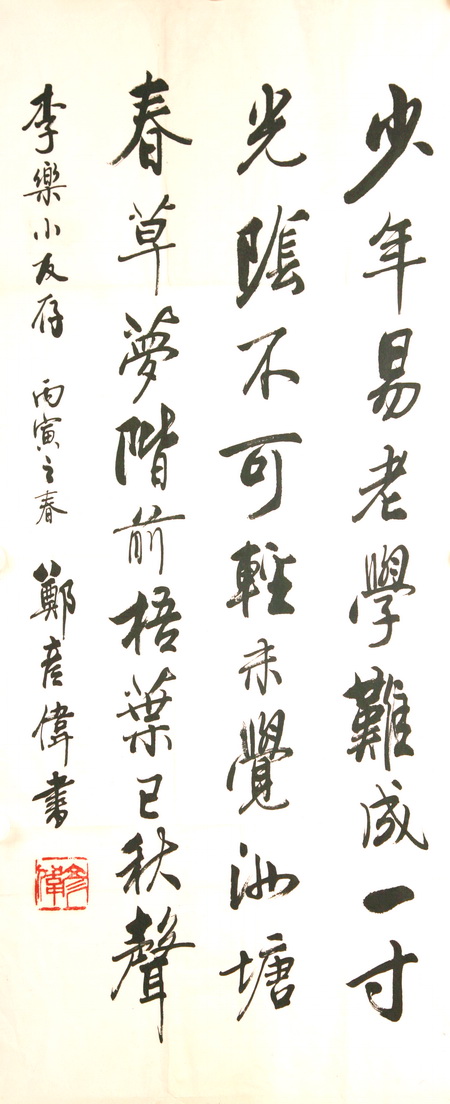 少年易老學難成一寸
光陰不可輕未覺池塘
春草夢階前梧葉已秋聲
李樂小友存 丙寅之春 鄭彥偉書
彥偉